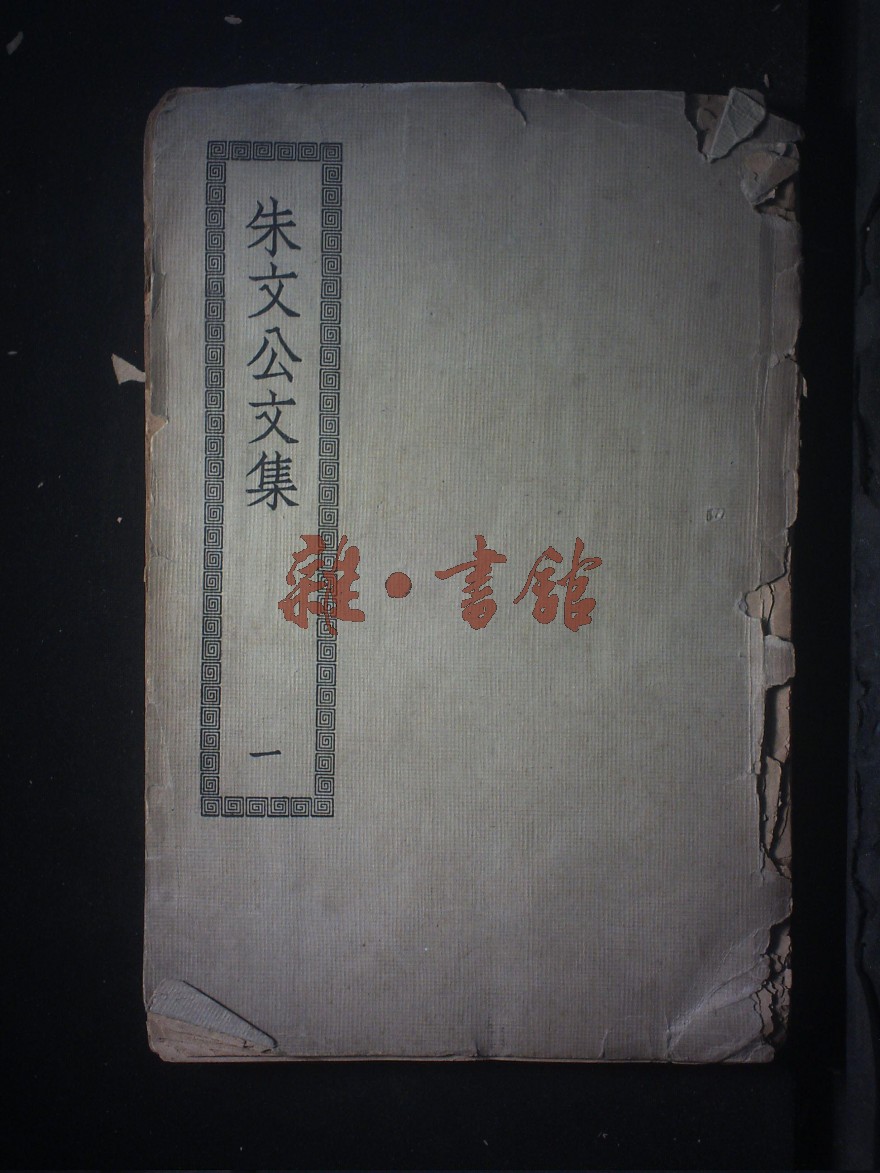 朱文公文集
一
雜·書館